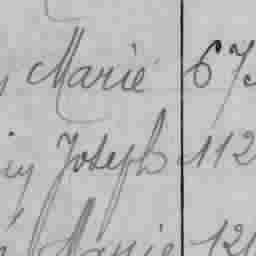 Marie 673
Joseph 112
Marie 12